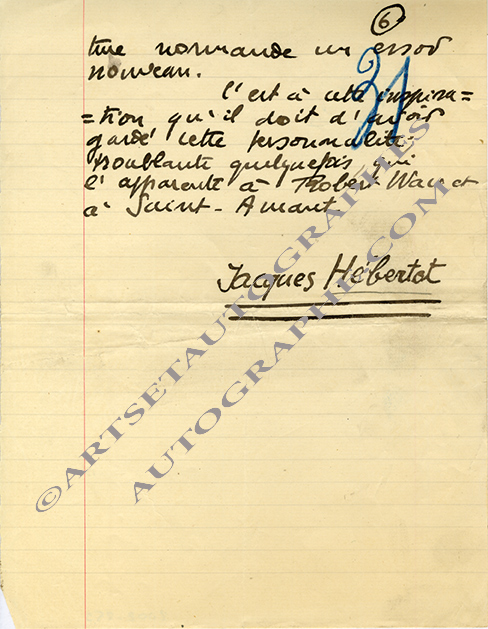 6
ture normande un essor
nouveau.
C'est à cette inspira=
=tion qu'il doit d'avoir
31
gardé cette personnalité
troublante quelquefois qui
l'apparente à Robert Wace et
à Saint-Amant.
Jacques Hébertot
©ARTSETAUTOGRAPHES
AUTOGRAPHE.COM